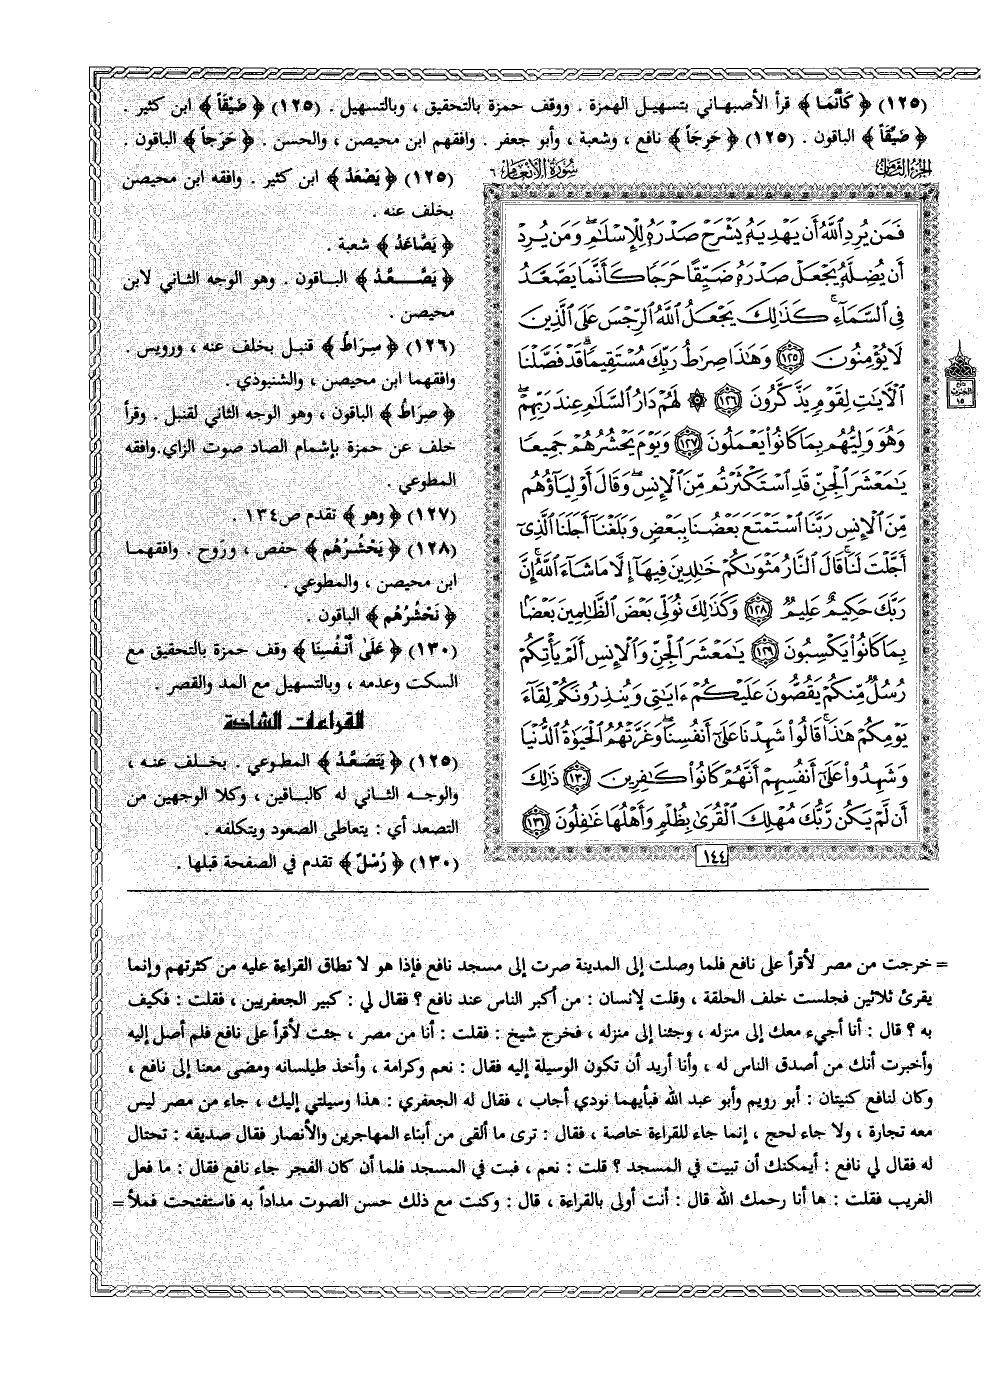 (١٢٥) ﴿ كَأَنَّمَا ﴾ قرأ الأصبهاني بتسهيل الهمزة . ووقف حمزة بالتحقيق ، وبالتسهيل . (١٢٥) ﴿ ضَيْقَاً ﴾ ابن كثير .
﴿ ضَيِّقَاً ﴾ الباقون . (١٢٥) ﴿ حَرِجَاً ﴾ نافع ، وشعبة ، وأبو جعفر . وافقهم ابن محيصن ، والحسن . ﴿ حَرَجَاً ﴾ الباقون .
الجزء الثامن
سورة الأنعام ٦
فَمَن يُرِدِ ٱللَّهُ أَن يَهْدِيَهُۥ يَشْرَحْ صَدْرَهُۥ لِلْإِسْلَٰمِ ۖ وَمَن يُرِدْ
أَن يُضِلَّهُۥ يَجْعَلْ صَدْرَهُۥ ضَيِّقًا حَرَجًا كَأَنَّمَا يَصَّعَّدُ
فِى ٱلسَّمَآءِ ۚ كَذَٰلِكَ يَجْعَلُ ٱللَّهُ ٱلرِّجْسَ عَلَى ٱلَّذِينَ
لَا يُؤْمِنُونَ ١٢٥ وَهَٰذَا صِرَٰطُ رَبِّكَ مُسْتَقِيمًا ۗ قَدْ فَصَّلْنَا
ٱلْءَايَٰتِ لِقَوْمٍ يَذَّكَّرُونَ ١٢٦ ۞ لَهُمْ دَارُ ٱلسَّلَٰمِ عِندَ رَبِّهِمْ ۖ
وَهُوَ وَلِيُّهُم بِمَا كَانُوا۟ يَعْمَلُونَ ١٢٧ وَيَوْمَ يَحْشُرُهُمْ جَمِيعًا
يَٰمَعْشَرَ ٱلْجِنِّ قَدِ ٱسْتَكْثَرْتُم مِّنَ ٱلْإِنسِ ۖ وَقَالَ أَوْلِيَآؤُهُم
مِّنَ ٱلْإِنسِ رَبَّنَا ٱسْتَمْتَعَ بَعْضُنَا بِبَعْضٍ وَبَلَغْنَآ أَجَلَنَا ٱلَّذِىٓ
أَجَّلْتَ لَنَا ۚ قَالَ ٱلنَّارُ مَثْوَىٰكُمْ خَٰلِدِينَ فِيهَآ إِلَّا مَا شَآءَ ٱللَّهُ ۗ إِنَّ
رَبَّكَ حَكِيمٌ عَلِيمٌ ١٢٨ وَكَذَٰلِكَ نُوَلِّى بَعْضَ ٱلظَّٰلِمِينَ بَعْضًۢا
بِمَا كَانُوا۟ يَكْسِبُونَ ١٢٩ يَٰمَعْشَرَ ٱلْجِنِّ وَٱلْإِنسِ أَلَمْ يَأْتِكُمْ
رُسُلٌ مِّنكُمْ يَقُصُّونَ عَلَيْكُمْ ءَايَٰتِى وَيُنذِرُونَكُمْ لِقَآءَ
يَوْمِكُمْ هَٰذَا ۚ قَالُوا۟ شَهِدْنَا عَلَىٰٓ أَنفُسِنَا ۖ وَغَرَّتْهُمُ ٱلْحَيَوٰةُ ٱلدُّنْيَا
وَشَهِدُوا۟ عَلَىٰٓ أَنفُسِهِمْ أَنَّهُمْ كَانُوا۟ كَٰفِرِينَ ١٣٠ ذَٰلِكَ
أَن لَّمْ يَكُن رَّبُّكَ مُهْلِكَ ٱلْقُرَىٰ بِظُلْمٍ وَأَهْلُهَا غَٰفِلُونَ ١٣١
١٤٤
(١٢٥) ﴿ يَصْعَدُ ﴾ ابن كثير . وافقه ابن محيصن
بخلف عنه .
﴿ يَصَّاعَدُ ﴾ شعبة .
﴿ يَصَّـعَّدُ ﴾ الباقون . وهو الوجه الثاني لابن
محيصن .
(١٢٦) ﴿ سِرَاطُ ﴾ قنبل بخلف عنه ، ورويس .
وافقهما ابن محيصن ، والشنبوذي .
﴿ صِرَاطُ ﴾ الباقون ، وهو الوجه الثاني لقنبل . وقرأ
خلف عن حمزة بإشمام الصاد صوت الزاي.وافقه
المطوعي .
(١٢٧) ﴿ وهو ﴾ تقدم ص١٣٤ .
(١٢٨) ﴿ يَحْشُرُهُم ﴾ حفص ، وروح . وافقهما
ابن محيصن ، والمطوعي .
﴿ نَحْشُرُهُم ﴾ الباقون .
(١٣٠) ﴿ عَلَىٰ أَنْفُسِنَا ﴾ وقف حمزة بالتحقيق مع
السكت وعدمه ، وبالتسهيل مع المد والقصر .
القراءات الشاذة
(١٢٥) ﴿ يَتَصَعَّدُ ﴾ المطوعي . بخلف عنه ،
والوجه الثاني له كالباقين ، وكلا الوجهين من
التصعد أي : يتعاطى الصعود ويتكلفه .
(١٣٠) ﴿ رُسْلٌ ﴾ تقدم في الصفحة قبلها .
= خرجت من مصر لأقرأ على نافع فلما وصلت إلى المدينة صرت إلى مسجد نافع فإذا هو لا تطاق القراءة عليه من كثرتهم وإنما
يقرئ ثلاثين فجلست خلف الحلقة ، وقلت لإنسان : من أكبر الناس عند نافع ؟ فقال لي : كبير الجعفريين ، فقلت : فكيف
به ؟ قال : أنا أجيء معك إلى منزله ، وجئنا إلى منزله ، فخرج شيخ : فقلت : أنا من مصر ، جئت لأقرأ على نافع فلم أصل إليه
وأخبرت أنك من أصدق الناس له ، وأنا أريد أن تكون الوسيلة إليه فقال : نعم وكرامة ، وأخذ طيلسانه ومضى معنا إلى نافع ،
وكان لنافع كنيتان : أبو رويم وأبو عبد الله فبأيهما نودي أجاب ، فقال له الجعفري : هذا وسيلتي إليك ، جاء من مصر ليس
معه تجارة ، ولا جاء لحج ، إنما جاء للقراءة خاصة ، فقال : ترى ما ألقى من أبناء المهاجرين والأنصار فقال صديقه : تحتال
له فقال لي نافع : أيمكنك أن تبيت في المسجد ؟ قلت : نعم ، فبت في المسجد فلما أن كان الفجر جاء نافع فقال : ما فعل
الغريب فقلت : ها أنا رحمك الله قال : أنت أولى بالقراءة ، قال : وكنت مع ذلك حسن الصوت مداداً به فاستفتحت فملأ =